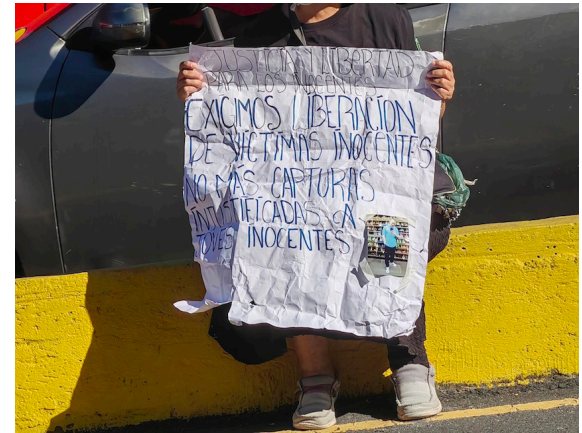 JUSTICIA Y LIBERTAD
PARA LOS INOCENTES
EXIGIMOS LIBERACIÓN
DE VÍCTIMAS INOCENTES
NO MÁS CAPTURAS
INJUSTIFICADAS A
INOCENTES